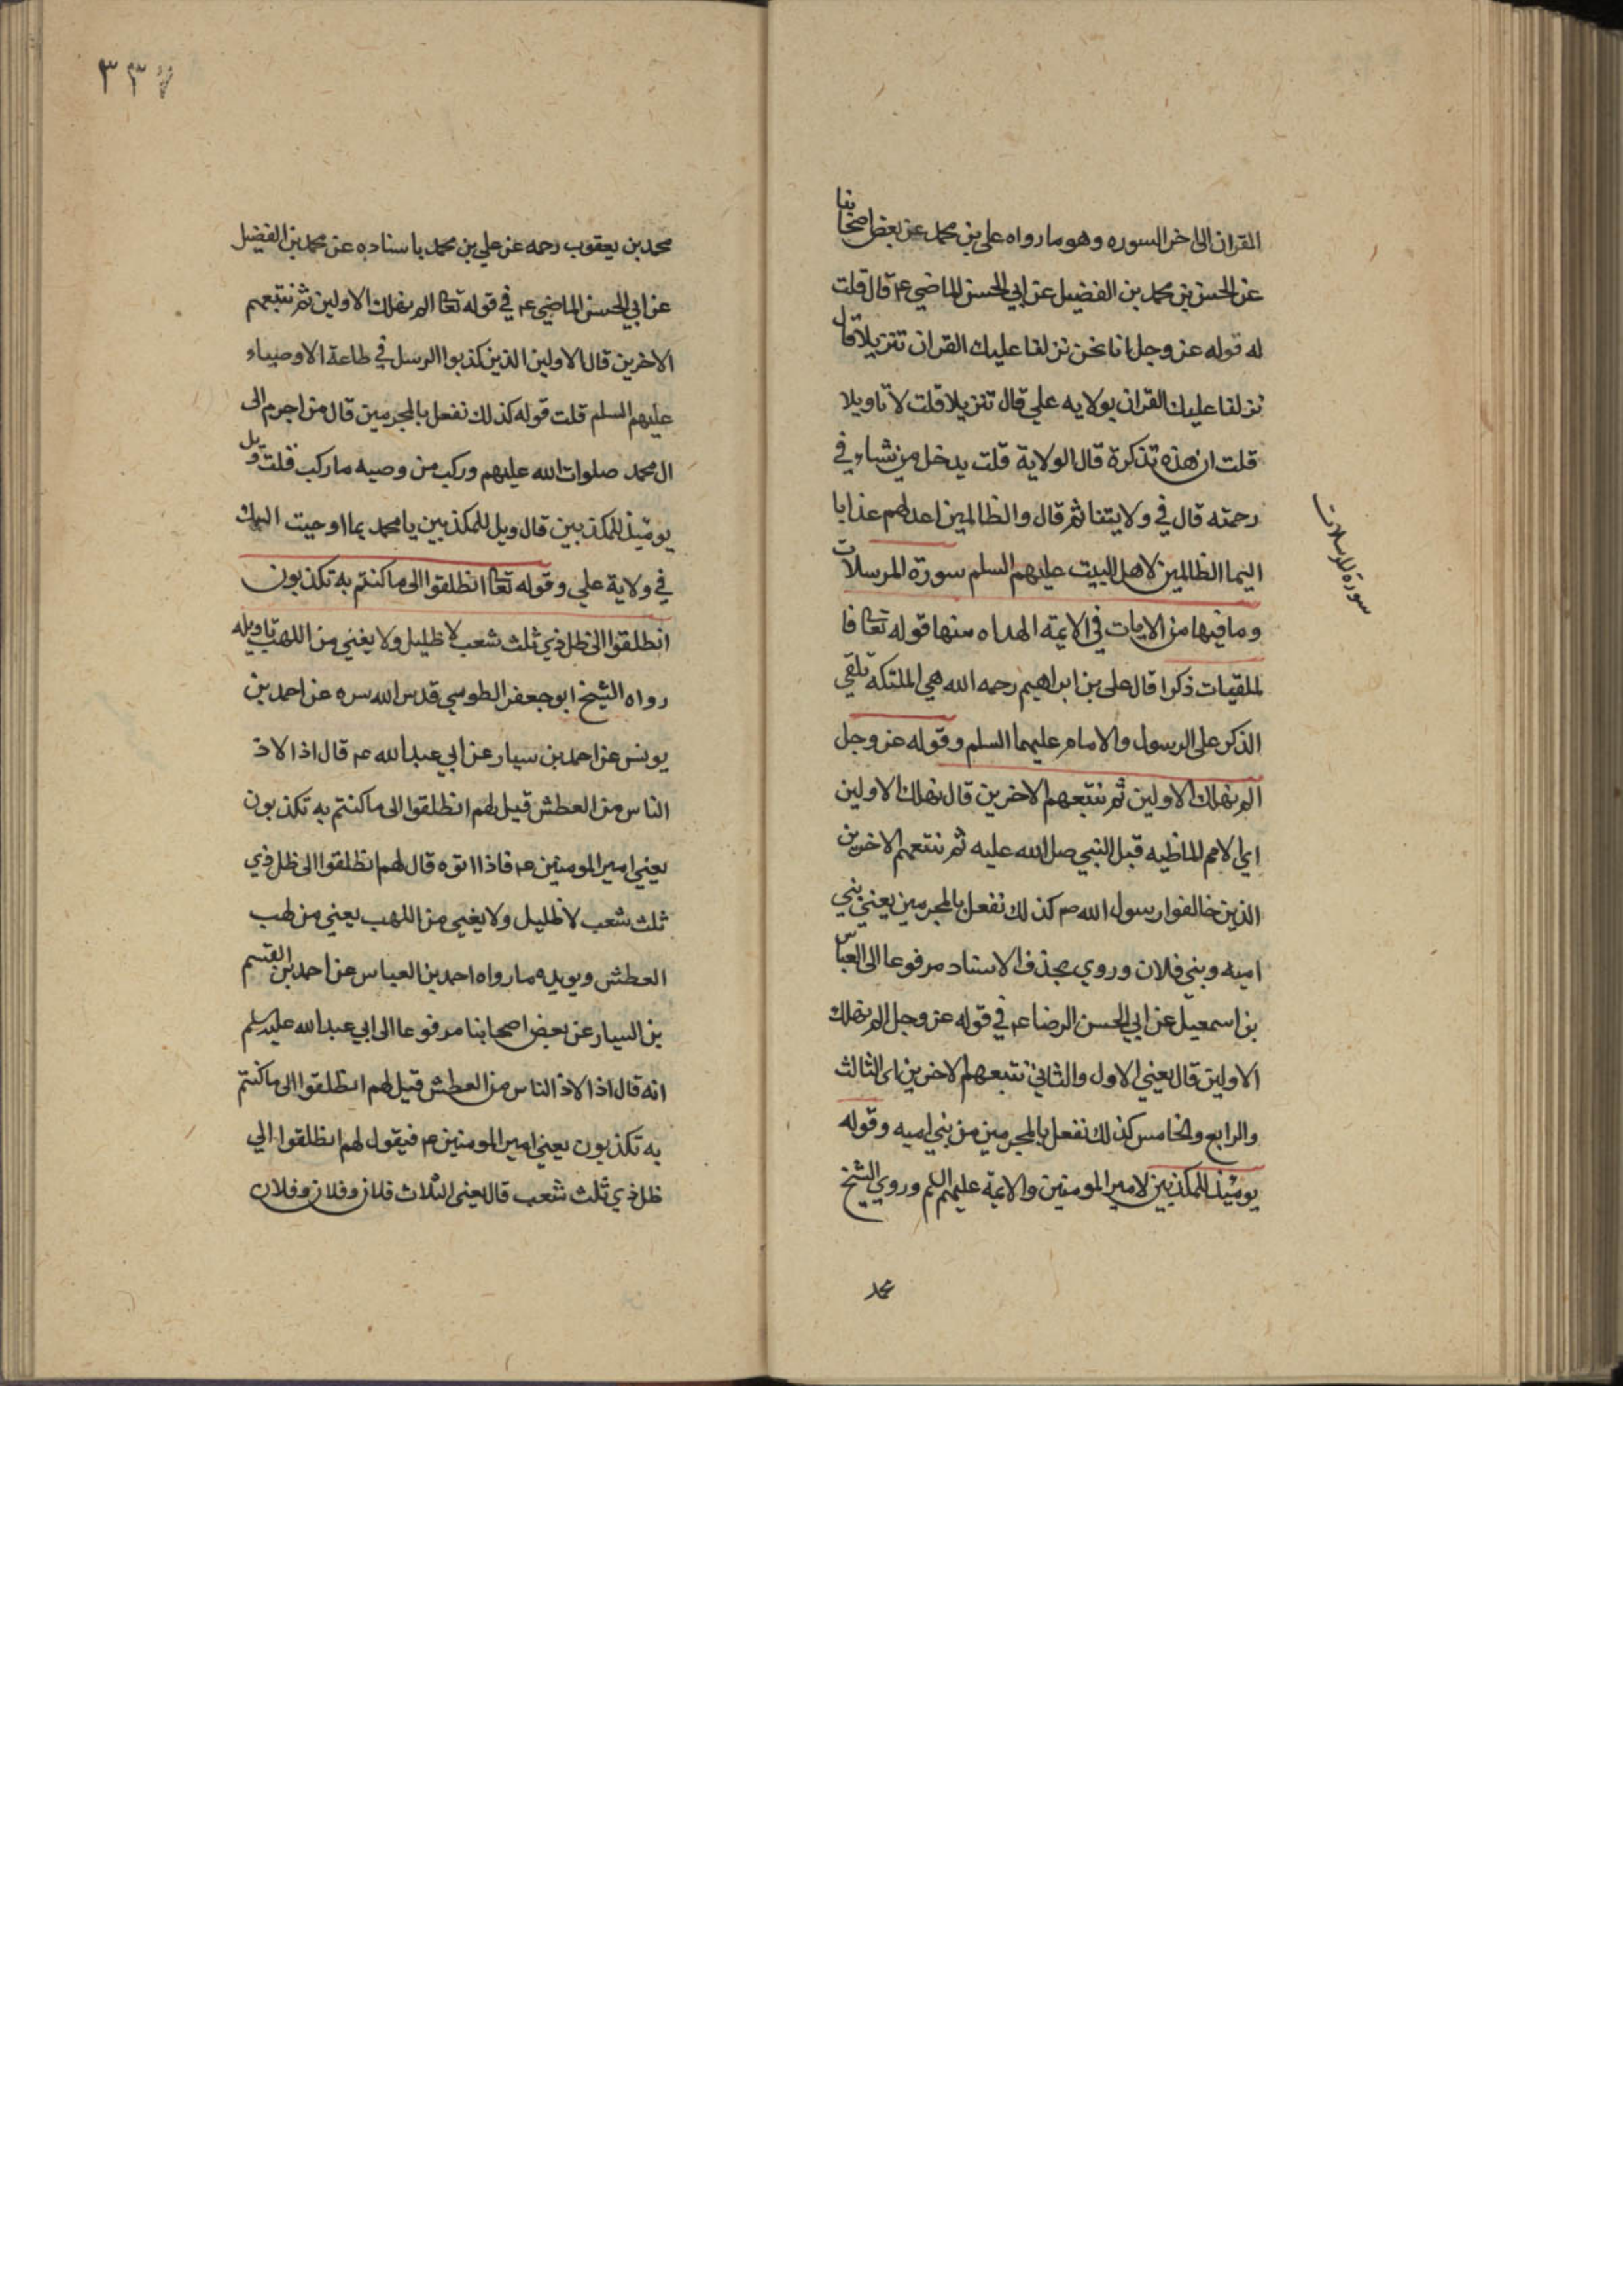 القران الى اخر السوره وهو ما رواه على بن محمد عن بعض اصحابنا
عن الحسن بن محمد بن الفضيل عن ابي الحسن الماضي ع قال قلت
له قوله عز وجل انا نحن نزلنا عليك القران تنزيلا قال
نزلنا عليك القران بولايه علي قال تنزيلا قلت لا تاويلا
قلت ان هذه تذكرة قال الولاية قلت يدخل من يشاء في
رحمته قال في ولايتنا ثم قال والظالمين اعد لهم عذابا
اليما الظالمين لاهل البيت عليهم السلم سورة المرسلات
وما فيها من الايات في الايمة الهداه منها قوله تعا فا
لملقيات ذكرا قال على بن ابراهيم رحمه الله هي الملئكة تلقي
الذكر على الرسول والامام عليهما السلم وقوله عز وجل
الم نهلك الاولين ثم نتبعهم الاخرين قال نهلك الاولين
اي الامم الماظيه قبل النبي صل الله عليه ثم نتبعهم الاخرين
الذين خالفوا رسول الله ص كذلك نفعل بالمجرمين يعني بني
اميه وبني فلان وروي بحذف الاسناد مرفوعا الى العباس
بن اسمعيل عن ابي الحسن الرضا ع في قوله عز وجل الم نهلك
الاولين قال يعني الاول والثاني نتبعهم الاخرين اى الثالث
والرابع والخامس كذلك نفعل بالمجرمين من بني اميه وقوله
يومئذ للمكذبين لامير المومنين والايمة عليهم السلم وروي الشيخ
محمد
سورة المرسلات
٣٣٧
محمد بن يعقوب رحمه عن علي بن محمد باسناده عن محمد بن الفضيل
عن ابي الحسن الماضي ع في قوله تعا الم نهلك الاولين ثم نتبعهم
الاخرين قال الاولين الذين كذبوا الرسل في طاعة الاوصياء
عليهم السلم قلت قوله كذلك نفعل بالمجرمين قال من اجرم الى
ال محمد صلوات الله عليهم وركب من وصيه ما ركب قلت ويل
يومئذ للمكذبين قال ويل للمكذبين يا محمد بما اوحيت اليك
في ولاية علي وقوله تعا انطلقوا الى ما كنتم به تكذبون
انطلقوا الى ظل ذي ثلث شعب لا ظليل ولا يغني من اللهب تاويله
رواه الشيخ ابو جعفر الطوسي قدس الله سره عن احمد بن
يونس عن احمد بن سيار عن ابي عبد الله ع قال اذا لاذ
الناس من العطش قيل لهم انطلقوا الى ما كنتم به تكذبون
يعني امير المومنين ع فاذا اتوه قال لهم انطلقوا الى ظل ذي
ثلث شعب لا ظليل ولا يغني من اللهب يعني من لهب
العطش ويويده ما رواه احمد بن العباس عن احمد بن القسم
بن السيار عن بعض اصحابنا مرفوعا الى ابي عبد الله عليه سلم
انه قال اذا لاذ الناس من العطش قيل لهم انطلقوا الى ما كنتم
به تكذبون يعني امير المومنين ع فيقول لهم انطلقوا الي
ظل ذي ثلث شعب قال يعني الثلاث فلان وفلان وفلان